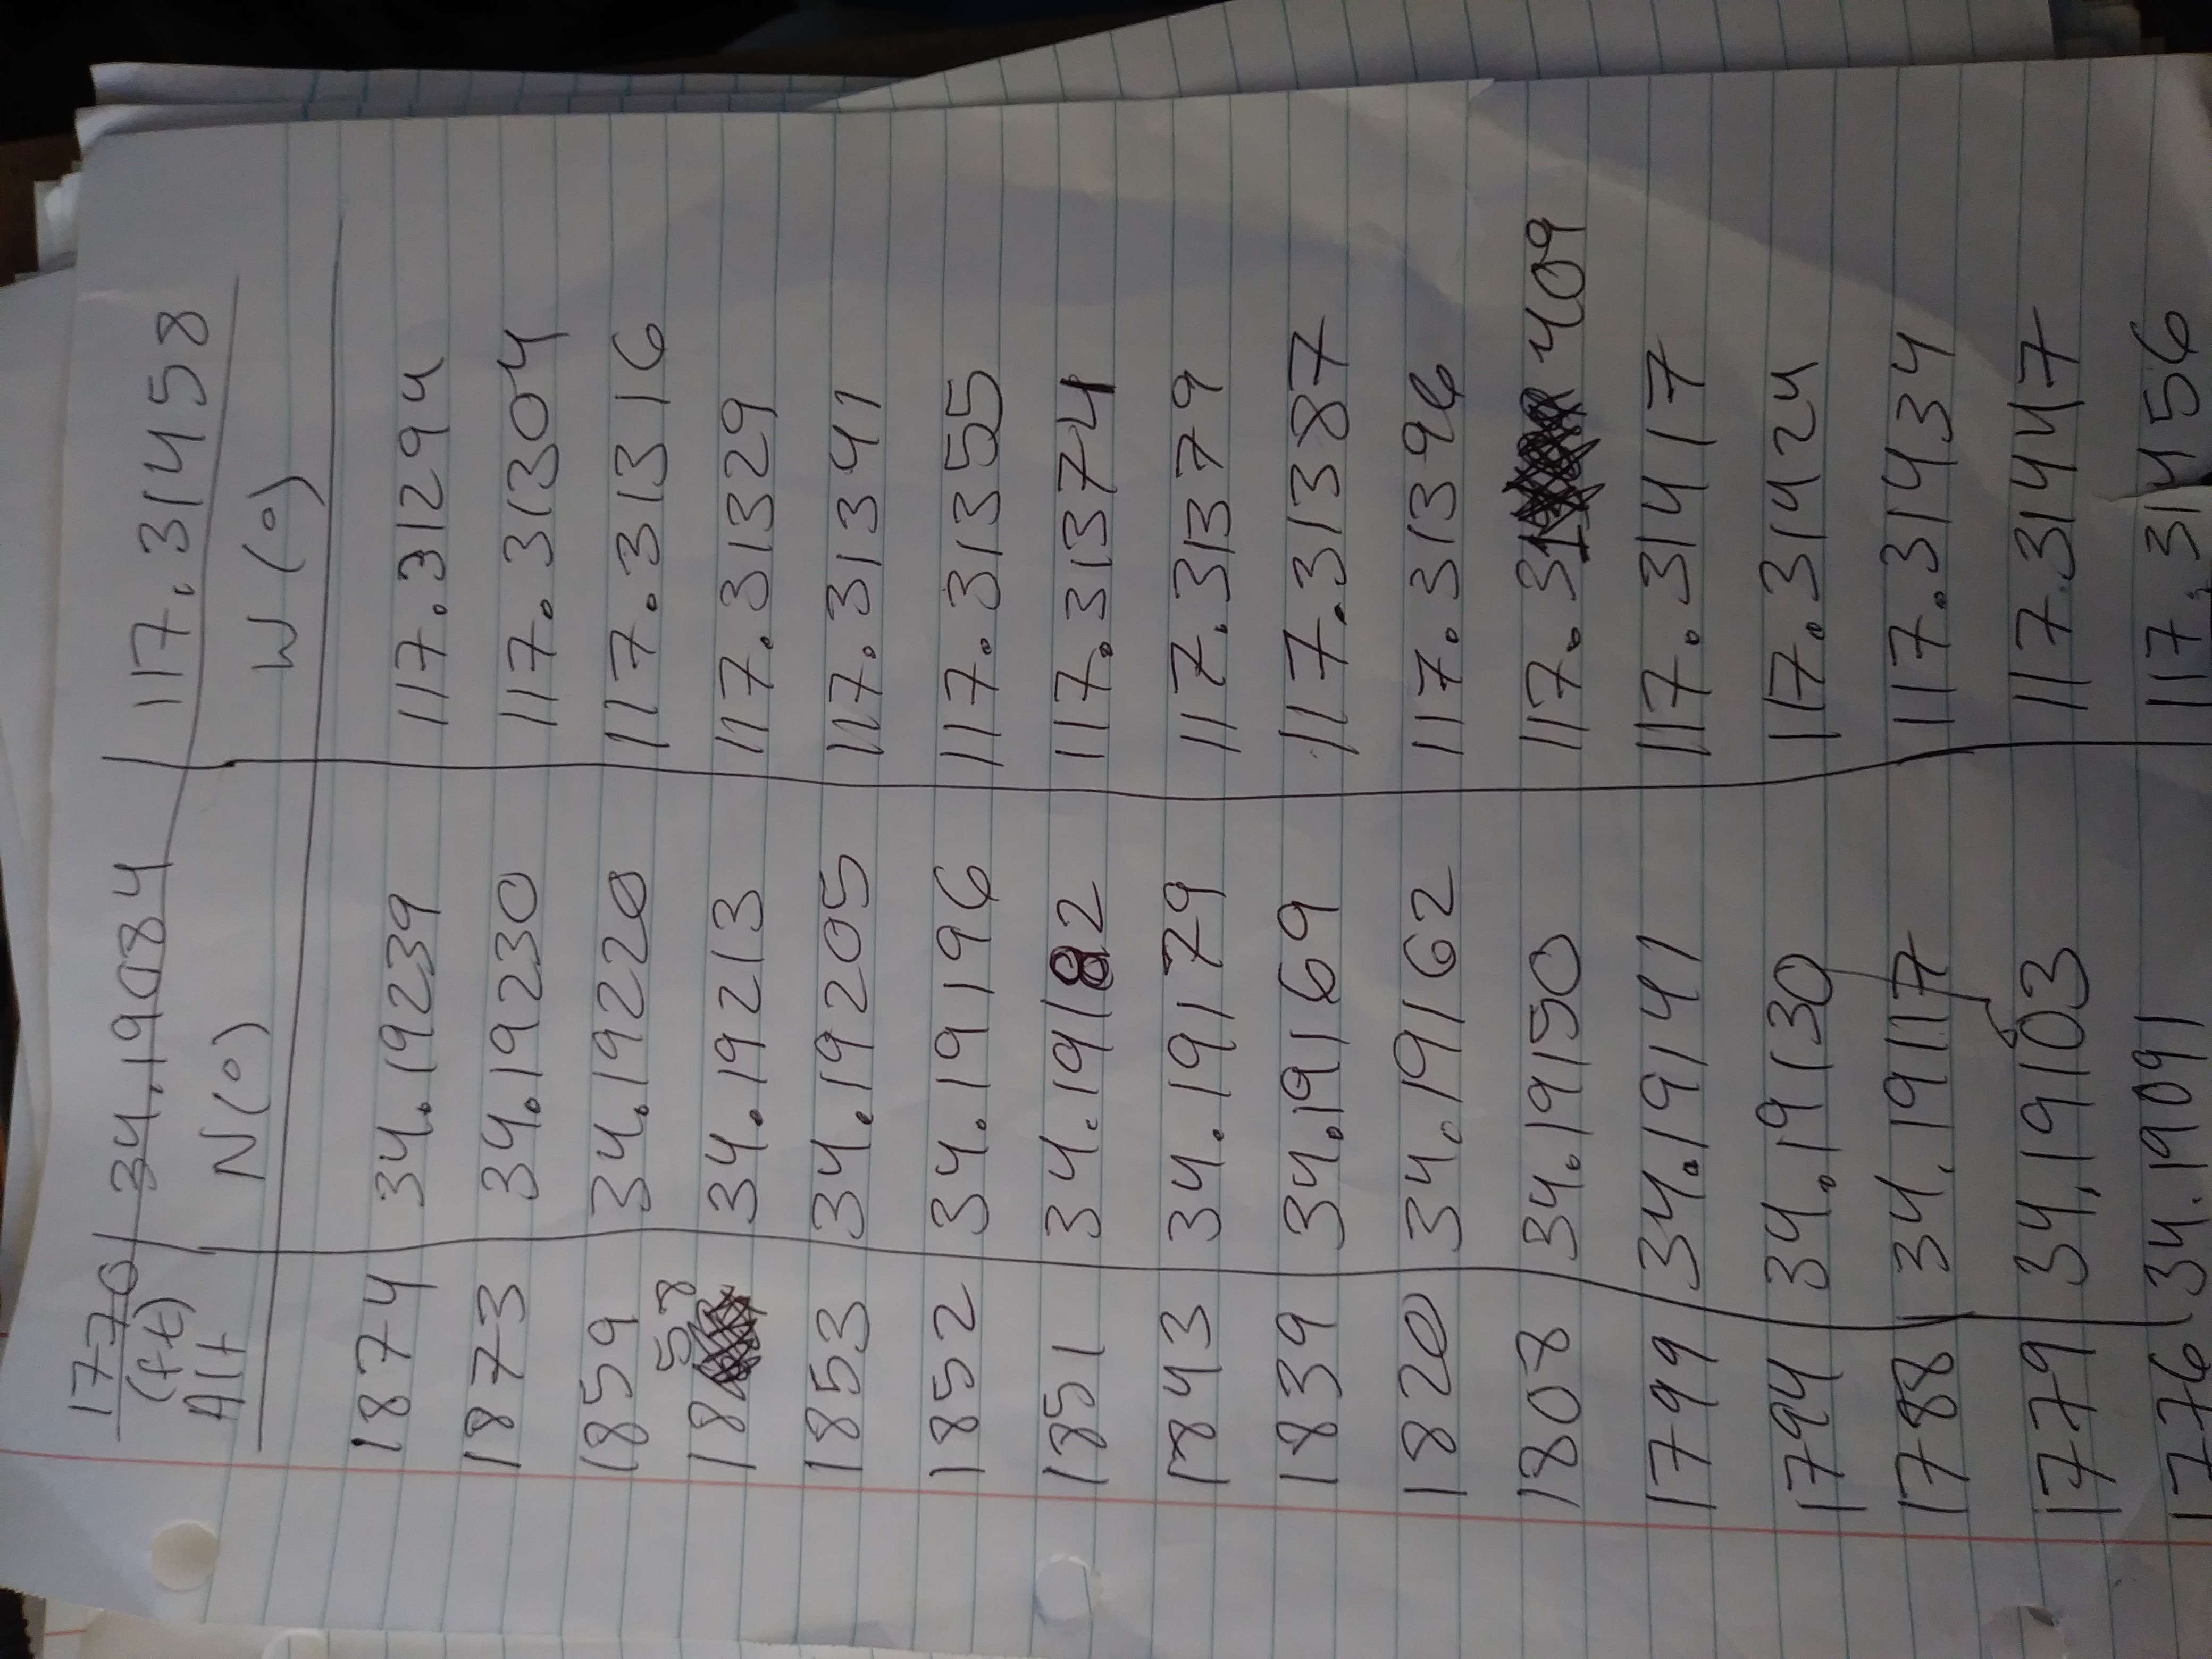 1776 | 34.19084 | 117.31458
Alt (ft) | N(°) | W(°)
1874 34.19239 117.31294
1873 34.19230 117.31304
1859 34.19220 117.31316
1858 34.19213 117.31329
1853 34.19205 117.31341
1852 34.19196 117.31355
1851 34.19182 117.31374
1843 34.19179 117.31379
1839 34.19169 117.31387
1820 34.19162 117.31396
1808 34.19150 117.31409
1799 34.19141 117.31417
1794 34.19130 117.31424
1788 34.19117 117.31434
1779 34.19103 117.31447
1776 34.19091 117.31456